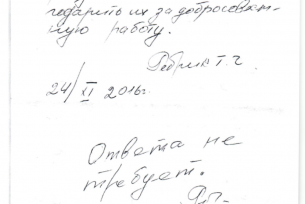 подарить их за добросовест-
ную работу.
Ребрик Т. Г.
24/XI 2016г.
Ответа не
требует.